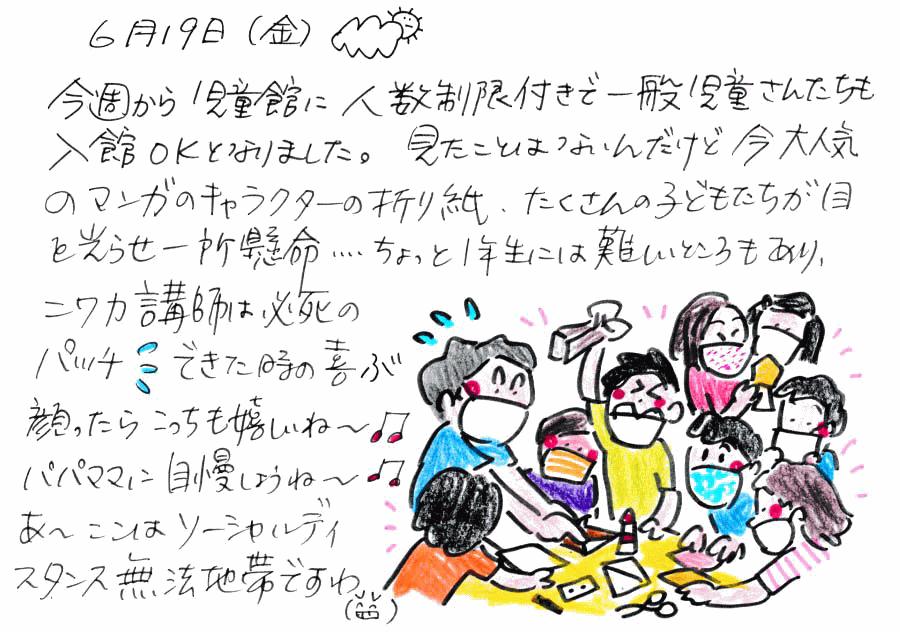 6月19日(金)
今週から児童館に人数制限付きで一般児童さんたちも
入館OKとなりました。見たことはないんだけど今大人気
のマンガのキャラクターの折り紙、たくさんの子どもたちが目
を光らせ一所懸命‥‥ちょっと1年生には難しいところもあり、
ニワカ講師は必死の
パッチ できた時の喜ぶ
顔ったらこっちも嬉しいね〜♫
パパママに自慢しようね〜♫
あ〜ここはソーシャルディ
スタンス無法地帯ですわ